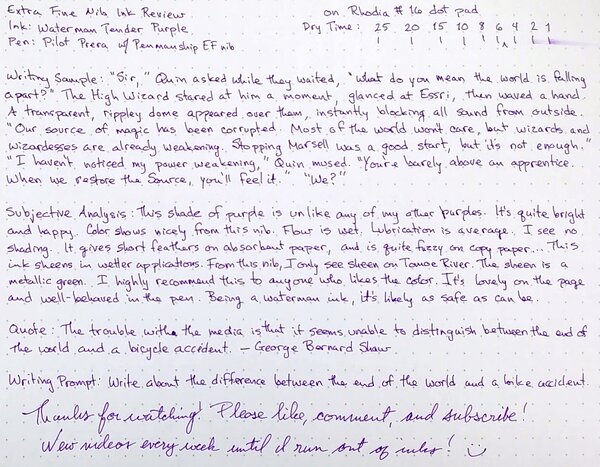 Extra Fine Nib Ink Review on Rhodia #16 dot pad
Ink: Waterman Tender Purple Dry Time: 25 20 15 10 8 6 4 2 1
Pen: Pilot Prera w/ Penmanship EF nib
Writing Sample: "Sir," Quin asked while they waited, "what do you mean the world is falling
apart?" The High Wizard stared at him a moment, glanced at Essri, then waved a hand.
A transparent, rippley dome appeared over them, instantly blocking all sound from outside.
"Our source of magic has been corrupted. Most of the world won't care, but wizards and
wizardesses are already weakening. Stopping Marsell was a good start, but it's not enough."
"I haven't noticed my power weakening," Quin mused. "You're barely above an apprentice.
When we restore the Source, you'll feel it." "We?"
Subjective Analysis: This shade of purple is unlike any of my other purples. It's quite bright
and happy. Color shows nicely from this nib. Flow is wet. Lubrication is average. I see no
shading. It gives short feathers on absorbent paper, and is quite fuzzy on copy paper... This
ink sheens in wetter applications. From this nib, I only see sheen on Tomoe River. The sheen is a
metallic green. I highly recommend this to anyone who likes the color. It's lovely on the page
and well-behaved in the pen. Being a waterman ink, it's likely as safe as can be.
Quote: The trouble with the media is that it seems unable to distinguish between the end of
the world and a bicycle accident. — George Bernard Shaw
Writing Prompt: Write about the difference between the end of the world and a bike accident.
Thanks for watching! Please like, comment, and subscribe!
New videos every week until I run out of inks!